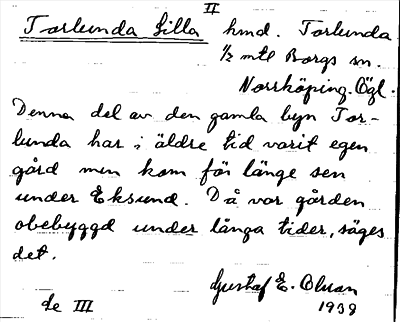 II
Torlunda Lilla hmd. Torlunda
1/2 mtl Borgs sn.
Norrköping. Ögl.
Denna del av den gamla byn Tor-
lunda har i äldre tid varit egen
gård men kom för länge sen
under Eksund. Då var gården
obebyggd under långa tider, säges
det.
Gustaf E. Olsson
de III 1939